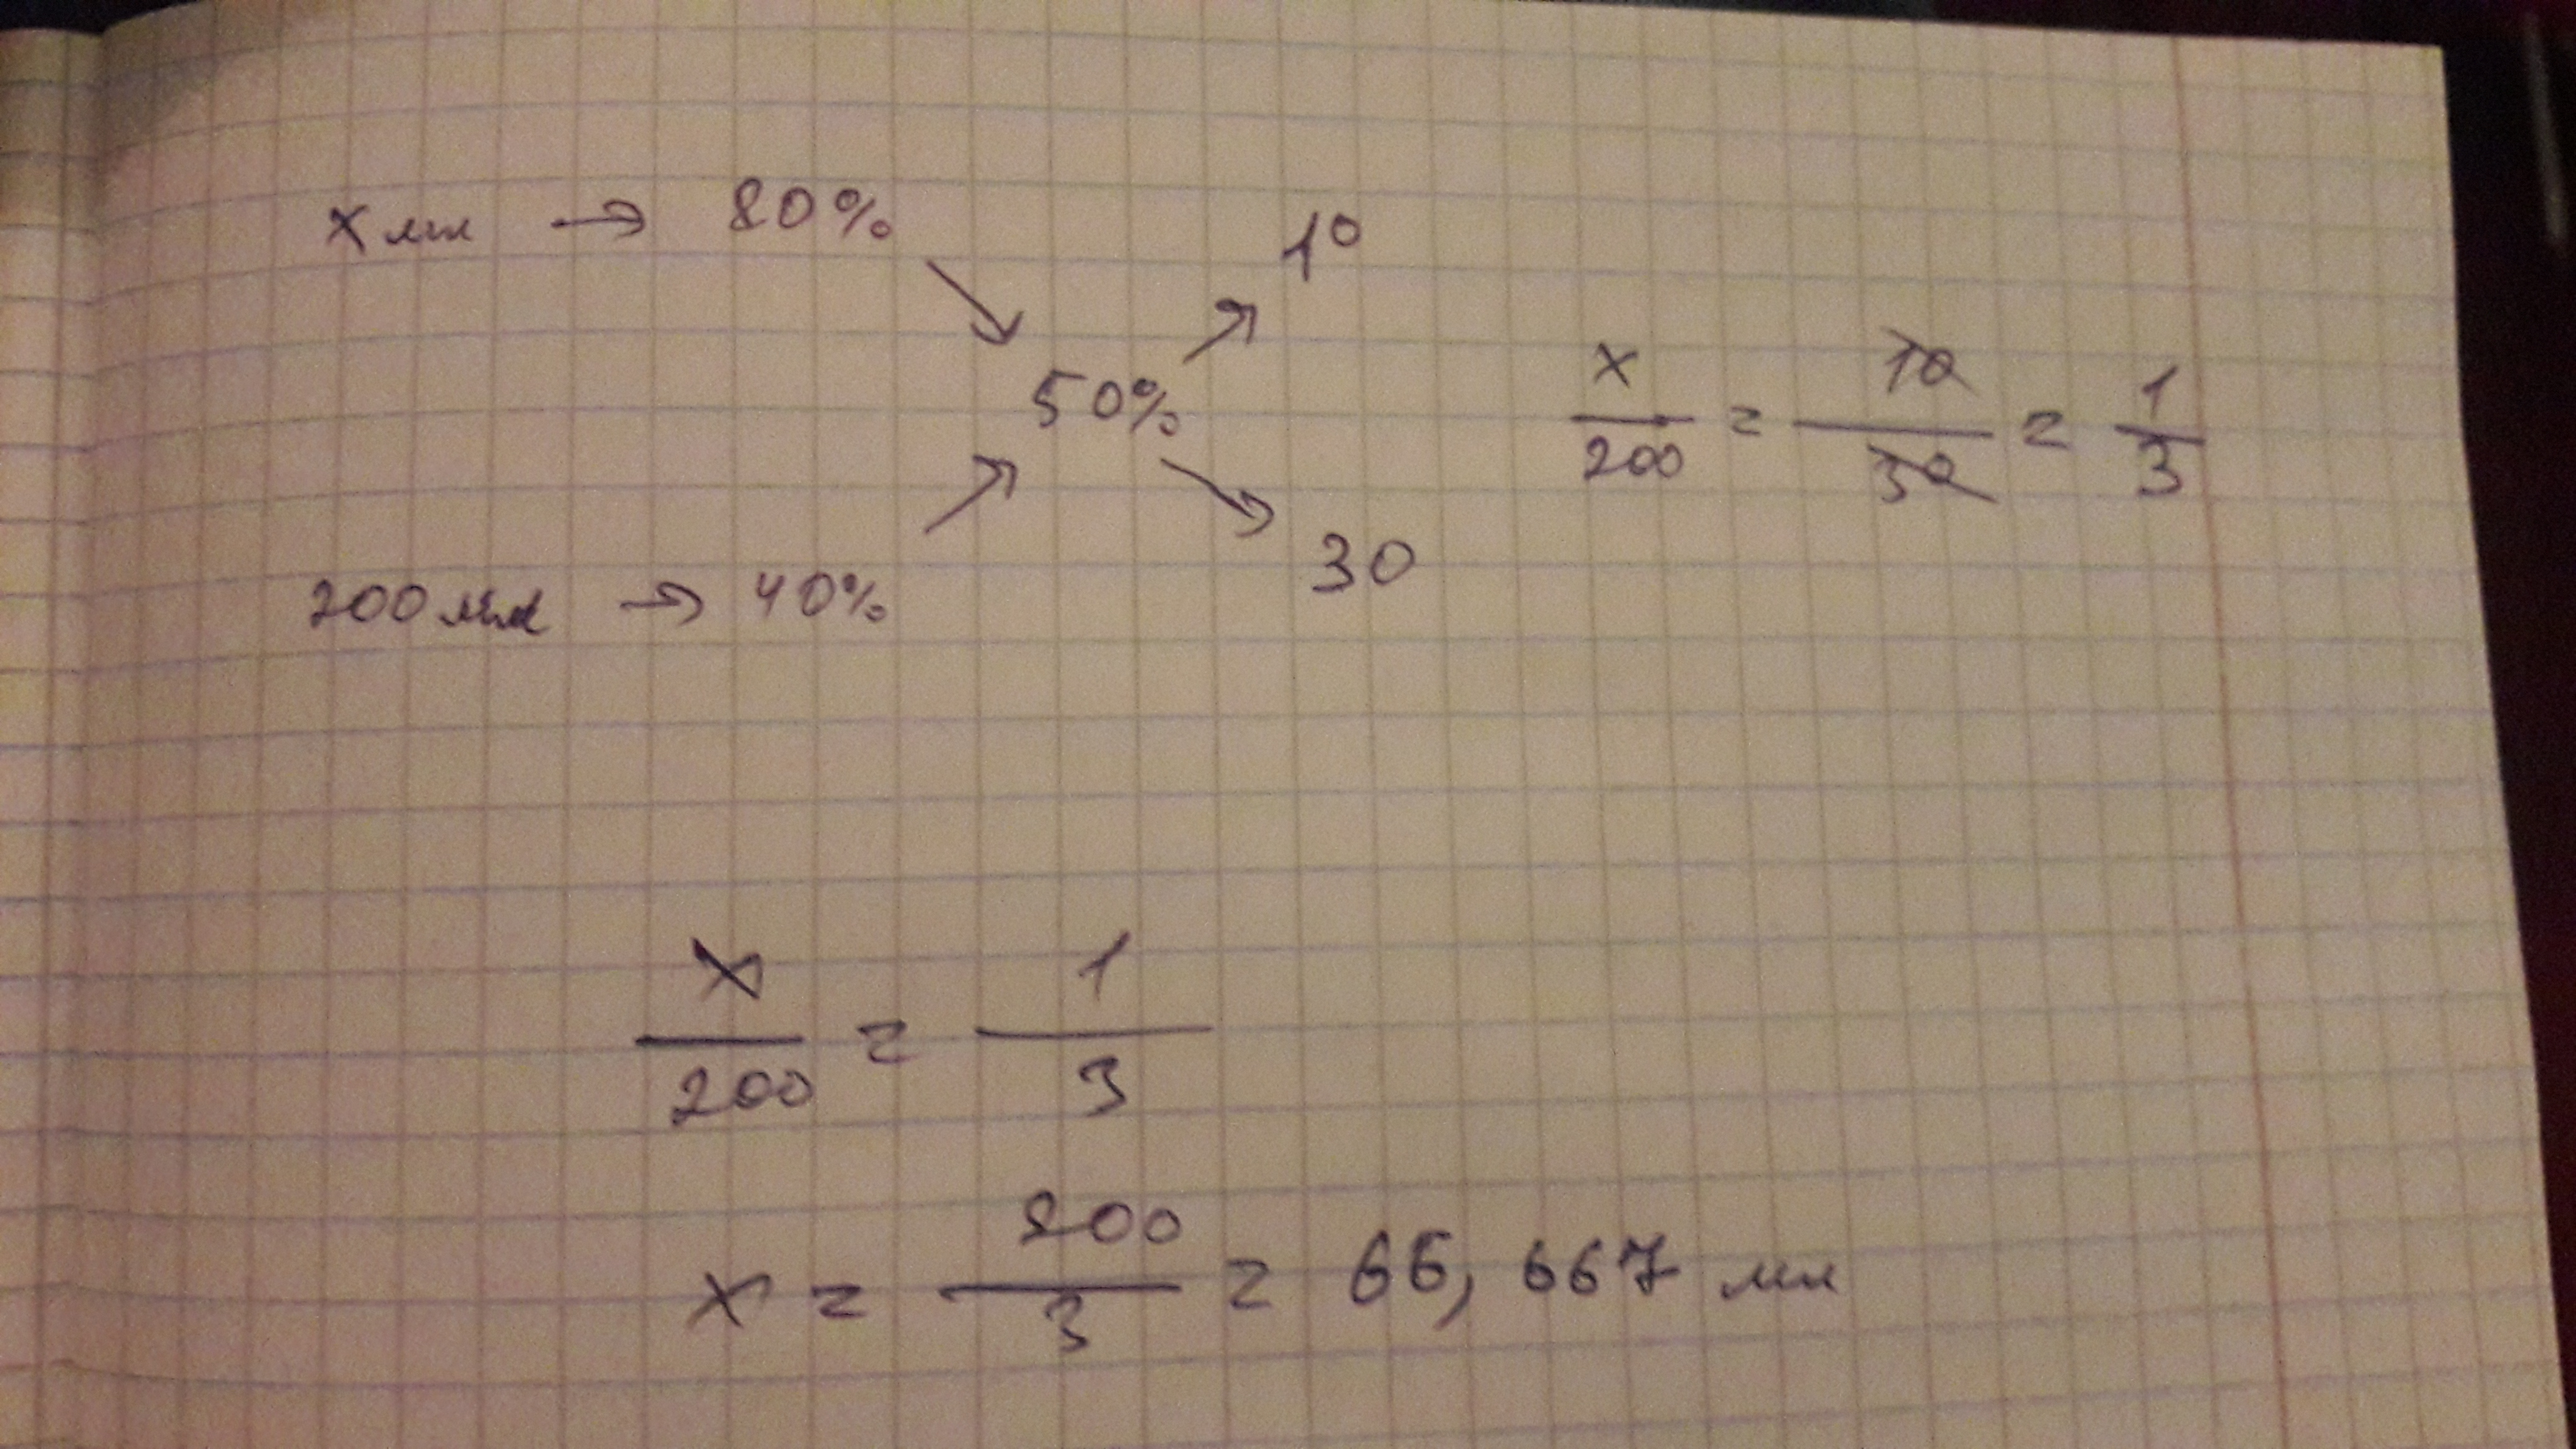 x мл → 80%
10
50%
200 мл → 40%
30
x/200 = 10/30 = 1/3
x/200 = 1/3
x = 200/3 = 66,667 мл